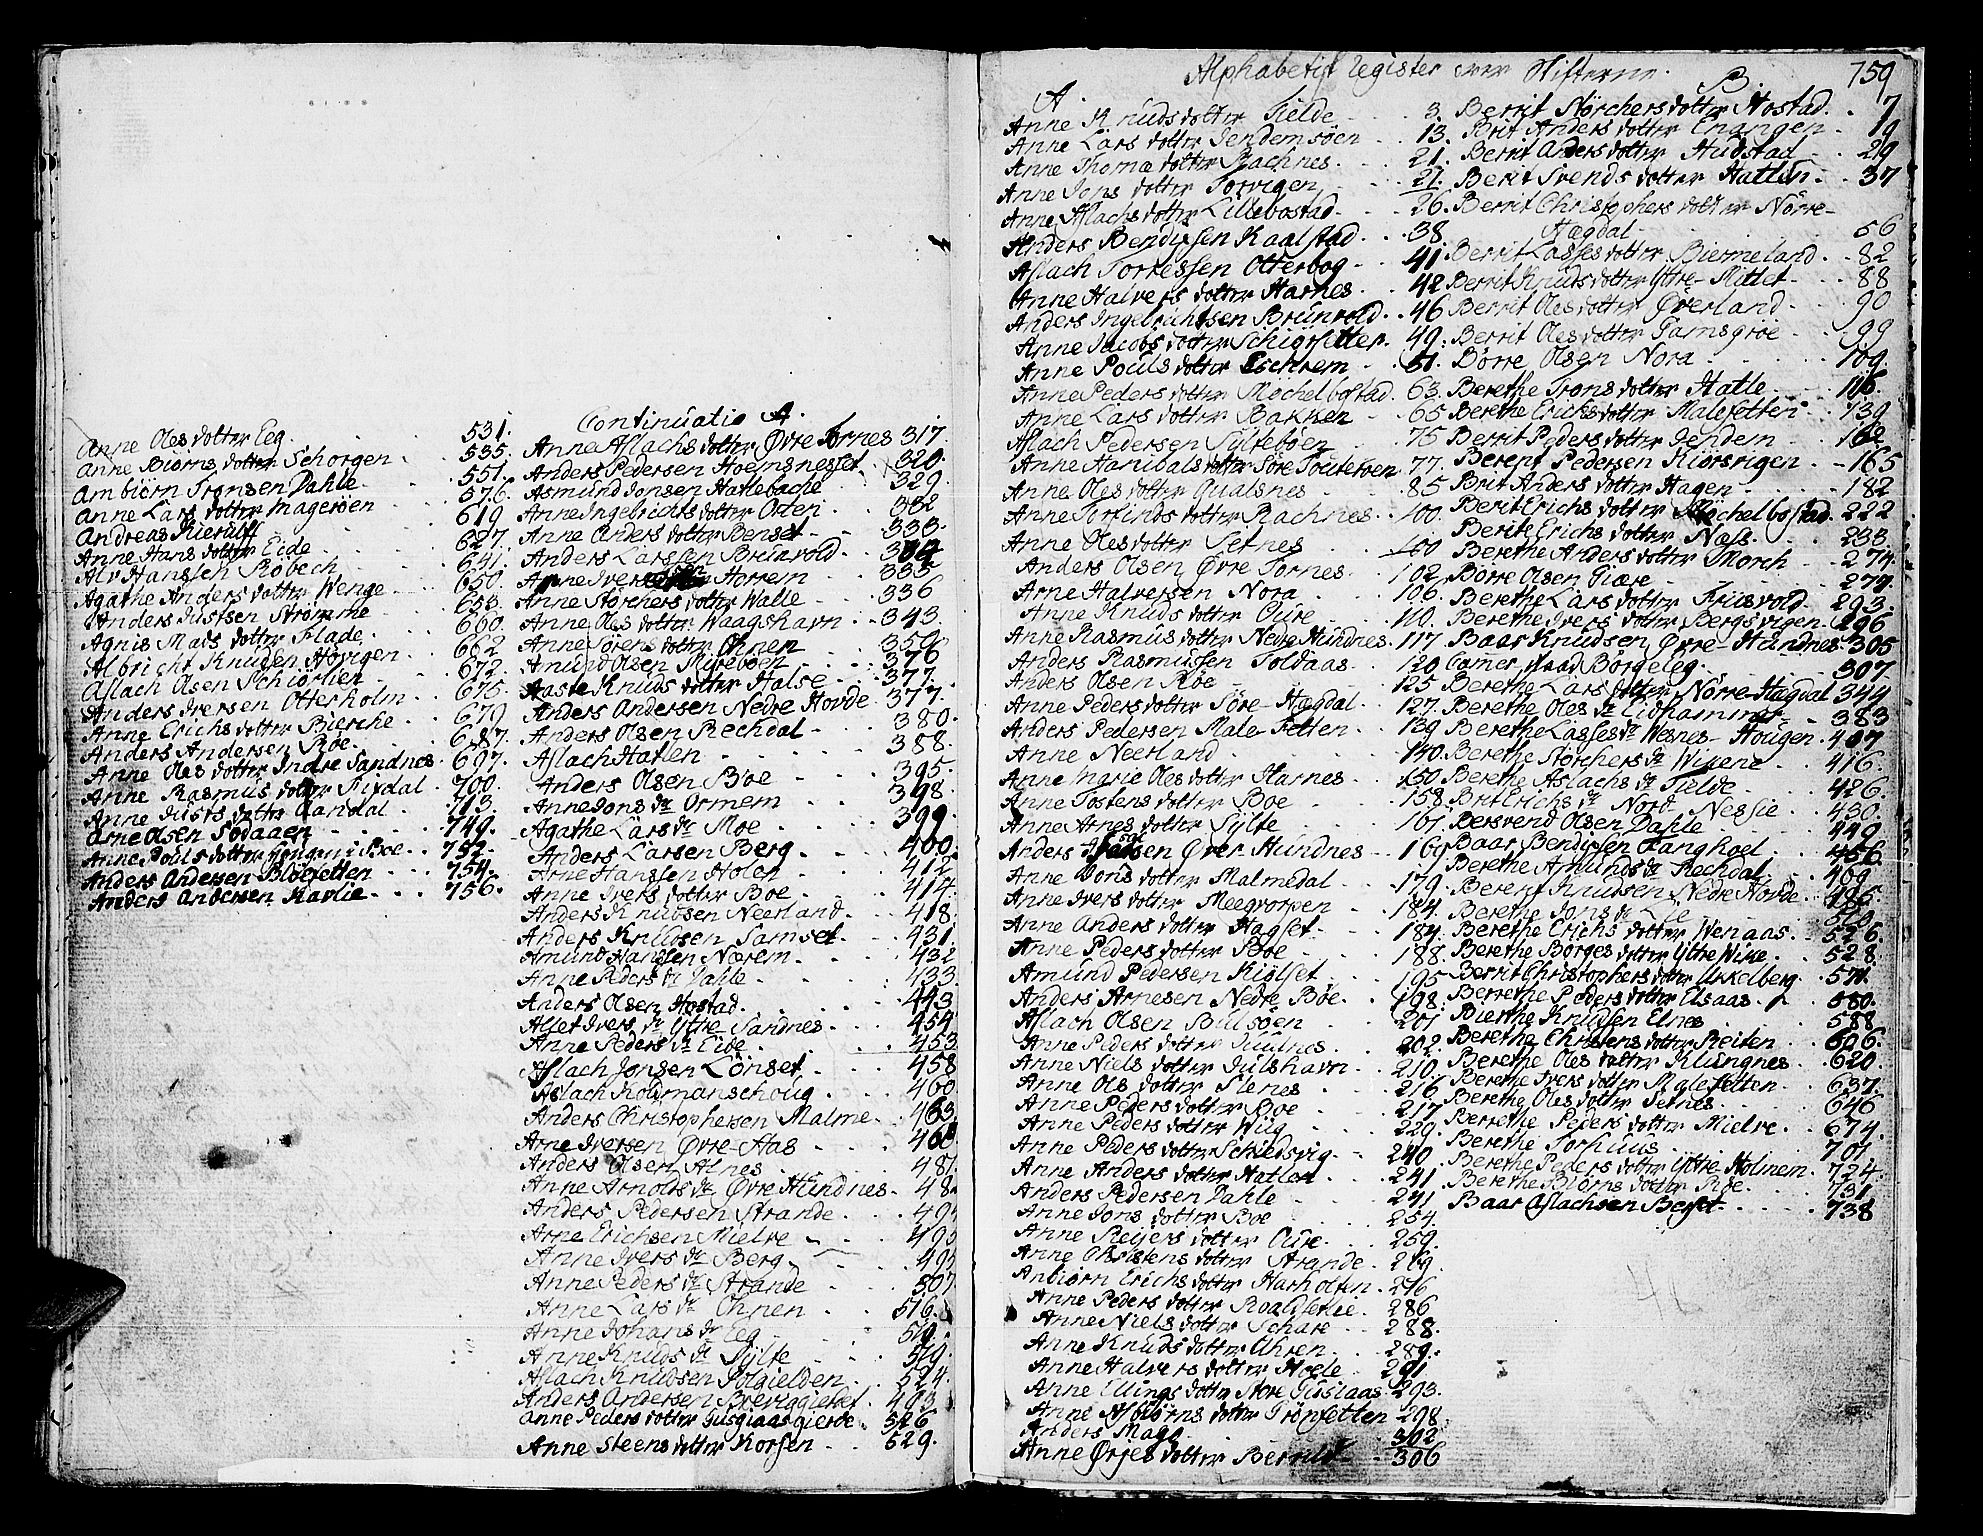 Anne Oles dotter Eeg. 531.
Anne Biørns dotter Schorgen 535.
Ambiørn Tronsen Dahle 551.
Anne Lars dotter Magerøen 576.
Andreas Kierulff 619
Anne Hans dotter Eide 627
Alv Hansen Røbech 641.
Agathe Anders dotter Wenge 650.
Anders Justsen Strømme 653.
Agnis Mads dotter Flade 660.
Albricht Knudsen Hovigen 662
Aslach Olsen Schiorlien 672.
Anders Iversen Otterholm 675.
Anne Erichs dotter Bierche 679
Anders Andersen Roe 687.
Anne Oles dotter Indre Sandnes 697.
Anne Rasmus dotter Fixdal 700.
Anne Justs dotter Aandal 713.
Arne Olsen Sødaaen 749.
Anne Pouls dotter i Boe 752.
Anders Andersen Blæsetten 754.
Anders Andersen Ravlie 756.
Continuatio A.
Anne Aslachs dotter Øvre Tornes 317.
Anders Pedersen Hoemsnesset 320.
Asmund Jonsen Hatlebache 329.
Anne Ingebrichts dotter Oten 332
Anne Anders dotter Benset 333.
Anders Larssen Brunvold 334
Anne Ivers Horrem 335
Anne Størchers dotter Walle 336
Anne Oles dotter Waagshavn 343
Anne Sørens dotter Ohnen 359.
Amund Olsen Myreboen 376
Aaste Knuds dotter Halse 377.
Anders Andersen Nedre Hovde 377.
Anders Olsen Rechdal 380.
Aslach Hatlen 388.
Anders Olsen Boe 395.
Anne Jons dr Ormem 398.
Agathe Lars dr Moe 399.
Anders Larsen Berg 400.
Arne Hanssen Holen 412
Anne Ivers dotter Boe 414.
Anders Knudsen Neerland 418.
Anders Knudsen Samset 431.
Amund Hanssen Nærem 432
Anne Peders dr Dahle 433.
Anders Olsen Hostad 443
Allet Ivers dr Ytre Sandnes 454
Anne Peders dr Eide 453
Aslach Jonsen Lønset 458
Aslach Kolmanschoug 460
Anders Christophersen Malme 463
Arne Iversen Øvre Aas 468
Anders Olsen Alnes 481.
Anne Arnolds dr Øvre Hundnes 48
Anders Pedersen Strande 49
Arne Erichsen Mielve 495
Anne Ivers dr Berg 495
Anne Peders dr Strande 507
Anne Lars dr Ohnen 516.
Anne Johans dr Eeg 519.
Anne Knuds dr Sylte 519.
Aslach Knudsen Solgielden 524.
Anders Andersen Breviggierdet 493.
Anne Peders dotter Gusgiaasgierde 526
Anne Steens dotter Korsen 529.
Alphabetisk Register over Stifterne.
759
A.
Anne Knuds dotter Fielde 3.
Anne Lars dotter Jendemsøen 13.
Anne Thomæ dotter Rachnes 21.
Anne Jons dotter Torvigen 27.
Anne Aslachs dotter Lillebostad 26.
Anders Bendixsen Kaalstad 38.
Aslach Torressen Otterbog 41.
Anne Halvers dotter Harnes 42
Anders Ingebrichtsen Brunvold 46
Anne Jacobs dotter Schiørsetter 49.
Anne Pouls dotter Eschrem 51.
Anne Peders dotter Mochelbostad 63.
Anne Lars dotter Bakken 65
Aslach Pedersen Sylteboen 75
Anne Hanibals dotter Søre Souteroen 77.
Anne Oles dotter Qualsnes 85
Anne Torfinds dotter Rachnes 100.
Anne Oles dotter Setnes 100
Anders Olsen Øvre Tornes 102.
Arne Halversen Nora 106.
Anne Knuds dotter Oure 110.
Anne Rasmus dotter Nedre Hundnes 117
Anders Rasmussen Soldaas 120
Anders Olsen Roe 125
Anne Peders dotter Søre Hægdal 127.
Anders Pedersen Male-Setten 139
Anne Neerland 140.
Anne Marie Oles dotter Harnes 150
Anne Tostens dotter Boe 158.
Anne Arnes dotter Sylte 161
Anders Isaksen Øver-Hundnes 169
Anne Jons dotter Malmedal 179.
Anne Ivers dotter Meegvorpen 184.
Anne Anders dotter Hagset 184.
Anne Peders dotter Boe 188.
Amund Pedersen Kiølset 195
Anders Arnesen Nedre Boe 198.
Aslach Olsen Bulsøen 201
Anne Peders dotter Juulnes 202.
Anne Niels dotter Julshavn 210.
Anne Ols dotter Slenes 216.
Anne Peders dotter Boe 217
Anne Peders dotter Wiig 229.
Anne Peders dotter Schiedsvig 240.
Anne Anders dotter Hatlen 241
Anders Pedersen Dahle 241
Anne Jons dotter Boe 254.
Anne Reyers dotter Oure 259.
Anne Christens dotter Strande 269.
Anbiørn Erichs dotter Harholten 276.
Anne Peders dotter Roaldsetlie 286
Anne Niels dotter Schare 288.
Anne Knuds dotter Uhren 289.
Anne Halvers dotter Hoele 291
Anne Ellings dotter Store Gusiaas 293.
Anne Asbiørns dotter Grønsetten 298
Anders Mage 302
Anne Ørjes dotter Berild 306
B.
Berrit Størchers dotter Hostad 7
Brit Anders dotter Enangen 19
Berrit Anders dotter Hudstad 29
Berit Svends dotter Hatlen 37
Berrit Christophers dotter Nørre-
Hægdal 56
Berrit Lasses dotter Biermeland 82
Berrit Knuds dotter Ytre-Mittet 88
Berrit Oles dotter Øverland 90
Berrit Oles dotter Tamsgroe 99
Børre Olsen Nora 109.
Berethe Trons dotter Hatle 116
Berethe Erichs dotter Malesetten 139
Berrit Peders dotter Jendem 162
Berent Pedersen Kiørsvigen 165
Brit Anders dotter Hagen 182
Berit Erichs dotter Mochelbostad 222
Berite Erichs dotter Næss 233.
Berethe Anders dotter Morch 274.
Børre Olsen Giære 277.
Berethe Lars dotter Friisvold 293.
Berethe Ivers dotter Bergsvigen 296
Baar Knudsen Øvre-Hundnes 305
Comer Børgeleg 307
Berethe Lars dotter Nørre-Hægdal 344
Berethe Oles dr Eidhammer 383
Berethe Lasses dr Wesnes-Hougen 407
Berethe Størchers dr Wikene 416.
Berethe Aslachs dr Fielde 426.
Brit Erichs dr Nord-Nessie 430.
Bersvend Olsen Dahle 449
Baar Bendixsen Langhoel 456.
Berethe Amunds dr Rechdal 469
Berent Knudsen Nedre Hovde 486.
Berethe Jons dr Lee
Berethe Erichs dotter Wenaas 526.
Berethe Børges dotter Ytre Wike 528.
Berrit Christophers dotter Ukkelberg 571.
Berrethe Peders dotter Elsaas 580.
Bierthe Knudsen Elnes 588
Berethe Christens dotter Reiten 606.
Berethe Oles dotter Klungnes 620.
Berethe Ivers dotter Malesetten 637.
Berethe Oles dotter Setnes 646
Berrethe Peders dotter Mielve 674.
Berethe Torhuus 701.
Berethe Peders dotter Ytre Holmem 724.
Berethe Biørns dotter Roe 731.
Baar Aslachsen Berset 738